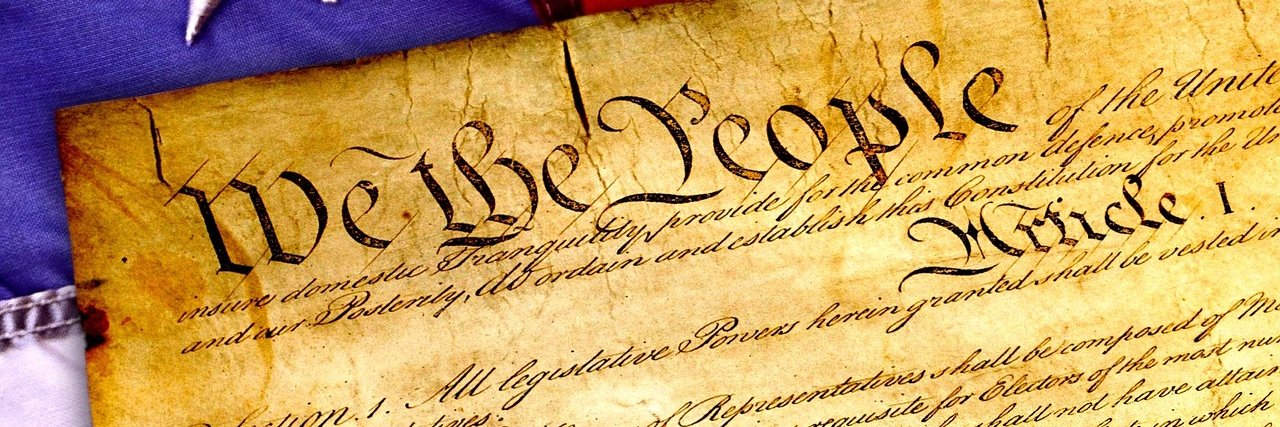 We the People of the Unite
insure domestic Tranquility, provide for the common defence, promo
and our Posterity, do ordain and establish this Constitution for the Un
Article. I.
ction. 1. All legislative Powers herein granted shall be vested in
tives.
of Representatives shall be composed of Me
requisite for Electors of the most nu
shall not have attain
in which